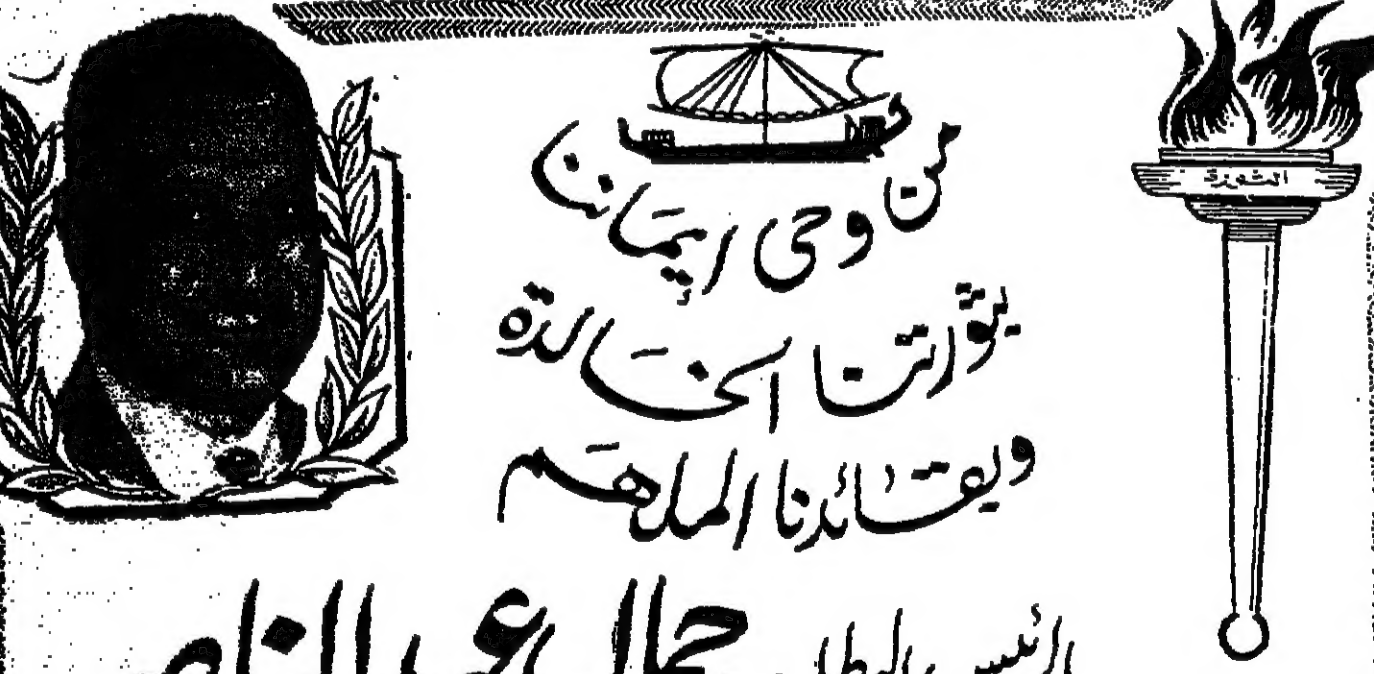 من وحى إيماننا
بثورتنا الخالدة
وبقائدنا الملهم
الرئيس البطل جمال عبد الناصر